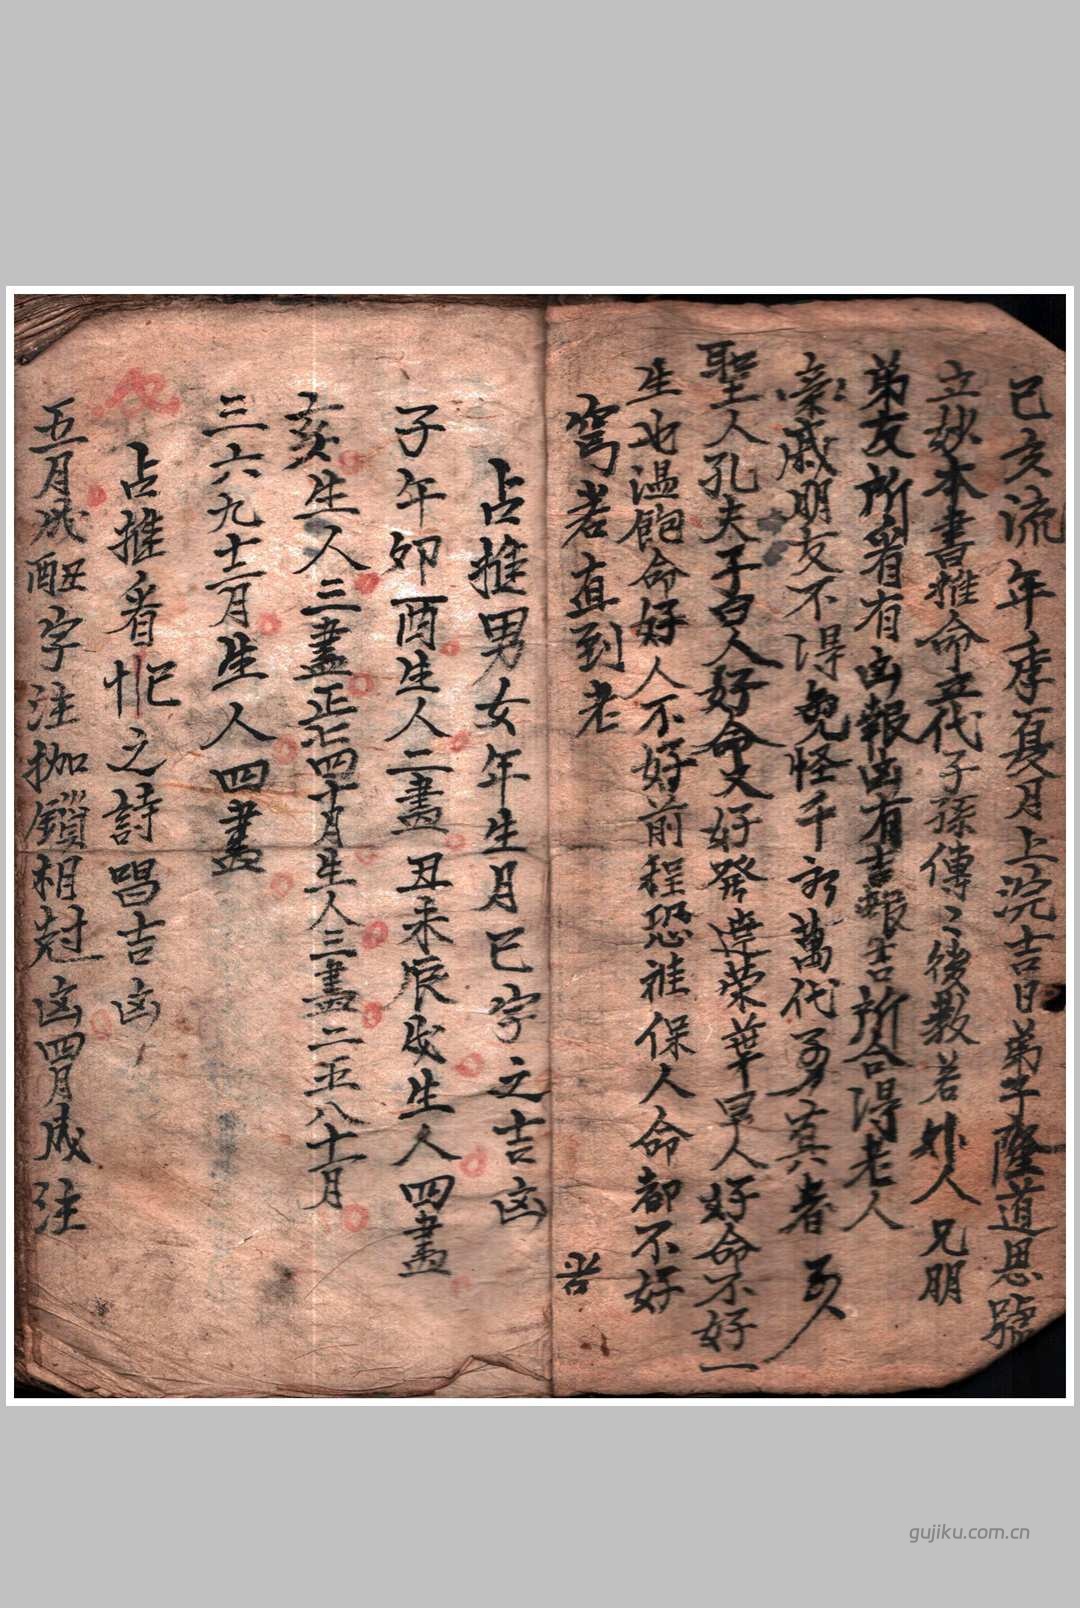 己亥流年季夏月上浣吉日弟子隆道恩號
立妙本書推命五代子孫傳〻後教若妙人兄朋
弟友所看有凶報凶有吉報吉所合得老人
親戚朋友不得免怪千萬代真者
聖人孔夫子白人好命又好發達荣華早人好命不好一
生也温飽命好人不好前程恐祖保人命都不好
窮若直到老
占推男女年生月巳字之吉凶
子午卯酉生人二畫丑未辰戌生人四畫
亥生人三畫正七四十月生人三畫二五八十一月
三六九十二月生人四畫
占推看之詩唱吉凶
五月戍字注枷鎖相尅凶四月成注
gujiku.com.cn